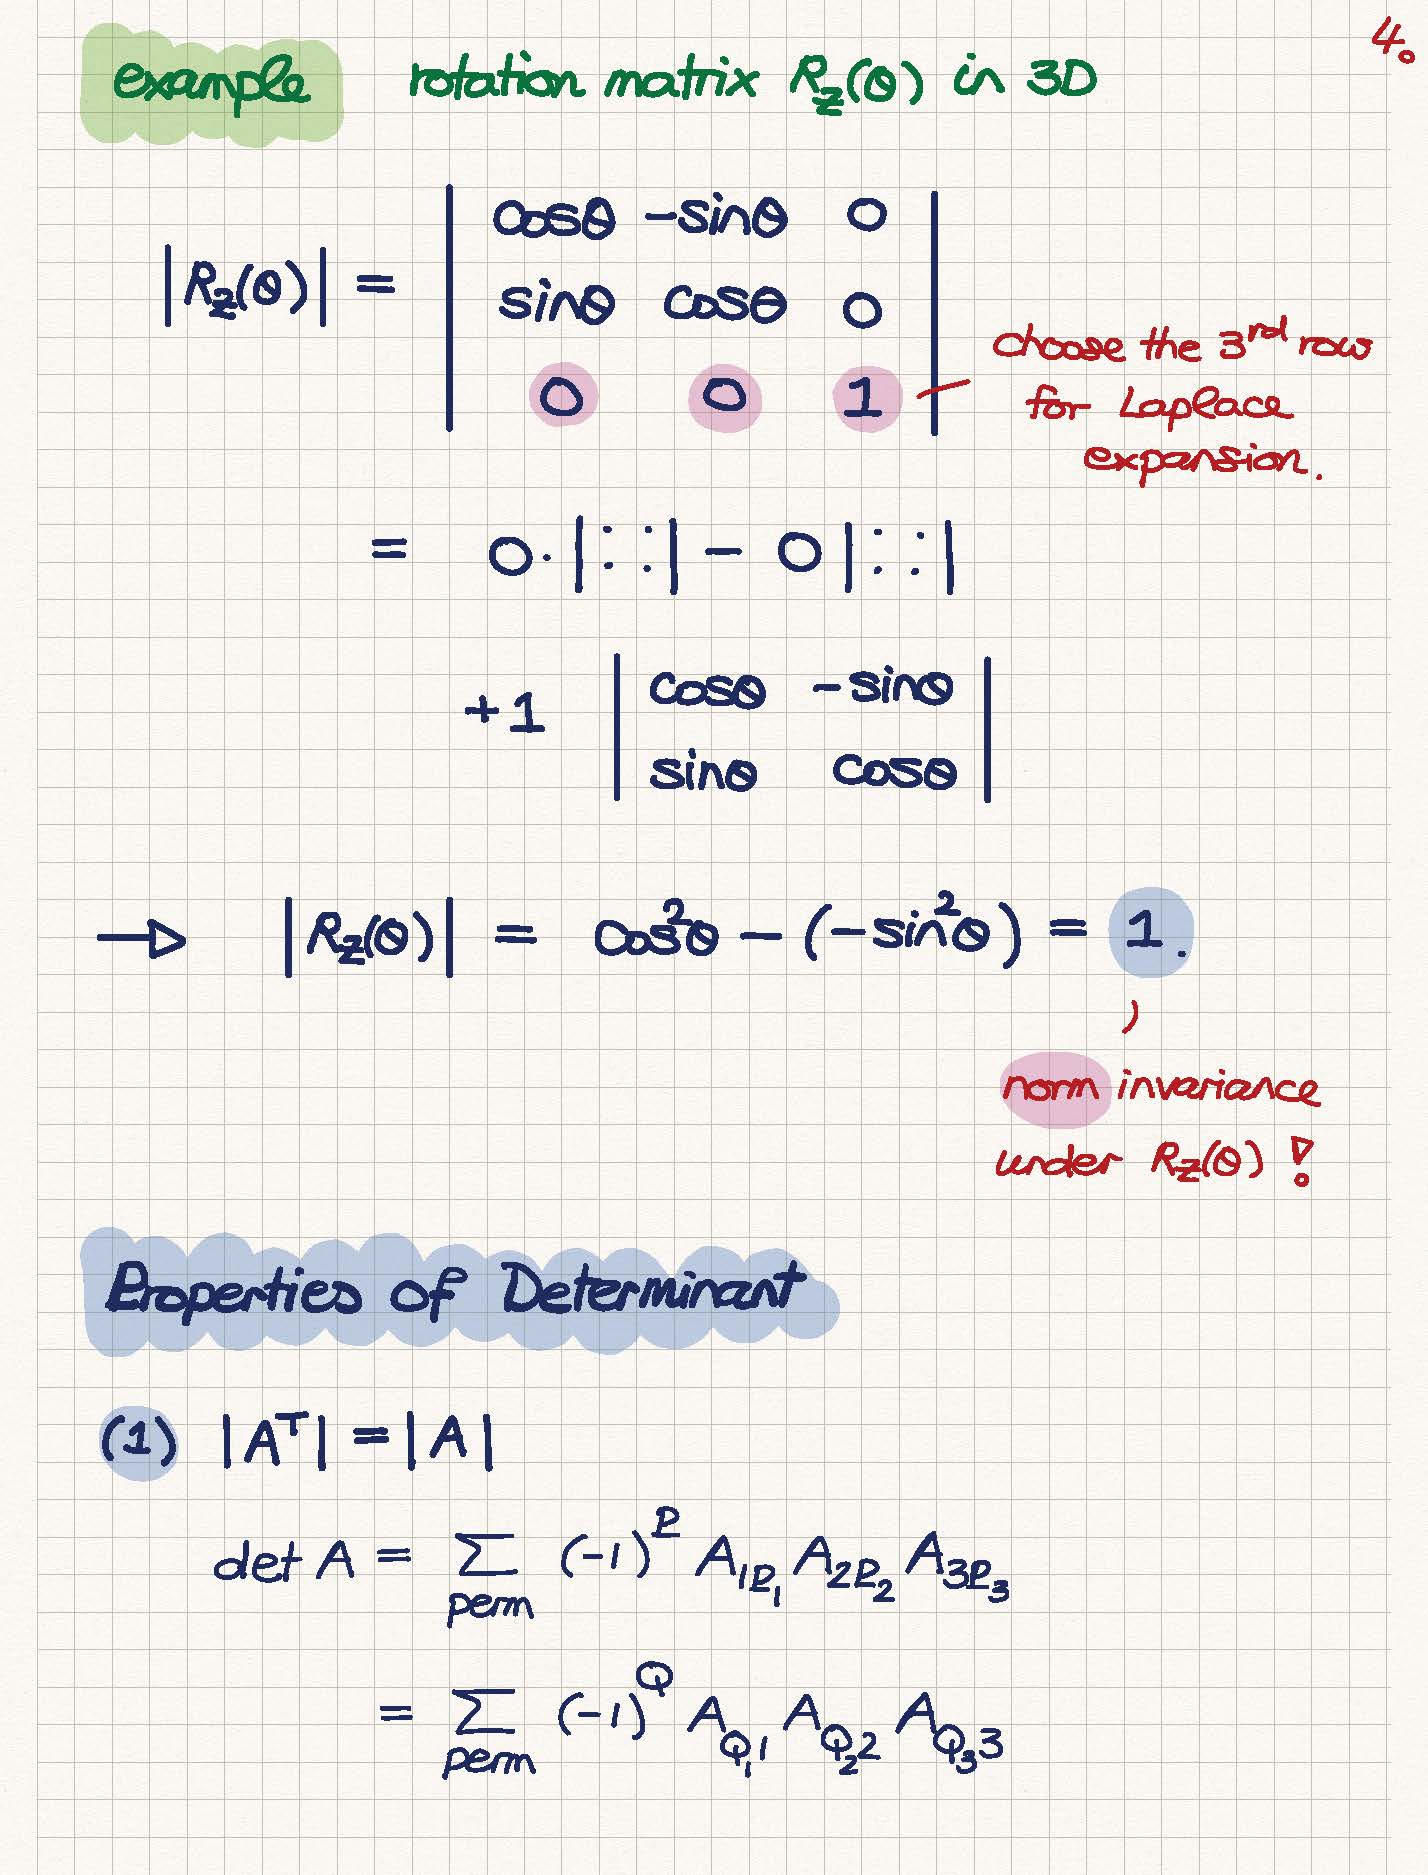 4.
example rotation matrix R_z(θ) in 3D
|R_z(θ)| = | cosθ -sinθ 0 |
| sinθ cosθ 0 |
| 0 0 1 |
choose the 3rd row
for Laplace
expansion.
= 0·|: :| - 0|: :|
+1 | cosθ -sinθ |
| sinθ cosθ |
→ |R_z(θ)| = cos²θ - (-sin²θ) = 1.
norm invariance
under R_z(θ) !
Properties of Determinant
(1) |Aᵀ| = |A|
det A = Σ_perm (-1)^P A_{1P_1} A_{2P_2} A_{3P_3}
= Σ_perm (-1)^Q A_{Q_1 1} A_{Q_2 2} A_{Q_3 3}